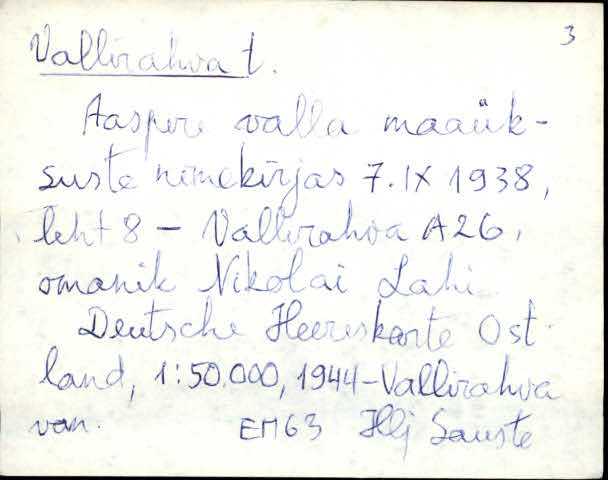 3
Vallirahva t.
Aaspere valla maaük-
suste nimekirjas 7.IX 1938,
leht 8 - Vallirahva A26,
omanik Nikolai Lahi
Deutsche Heereskarte Ost-
land, 1:50.000, 1944-Vallirahva
van. EM63 Hlj Sauste